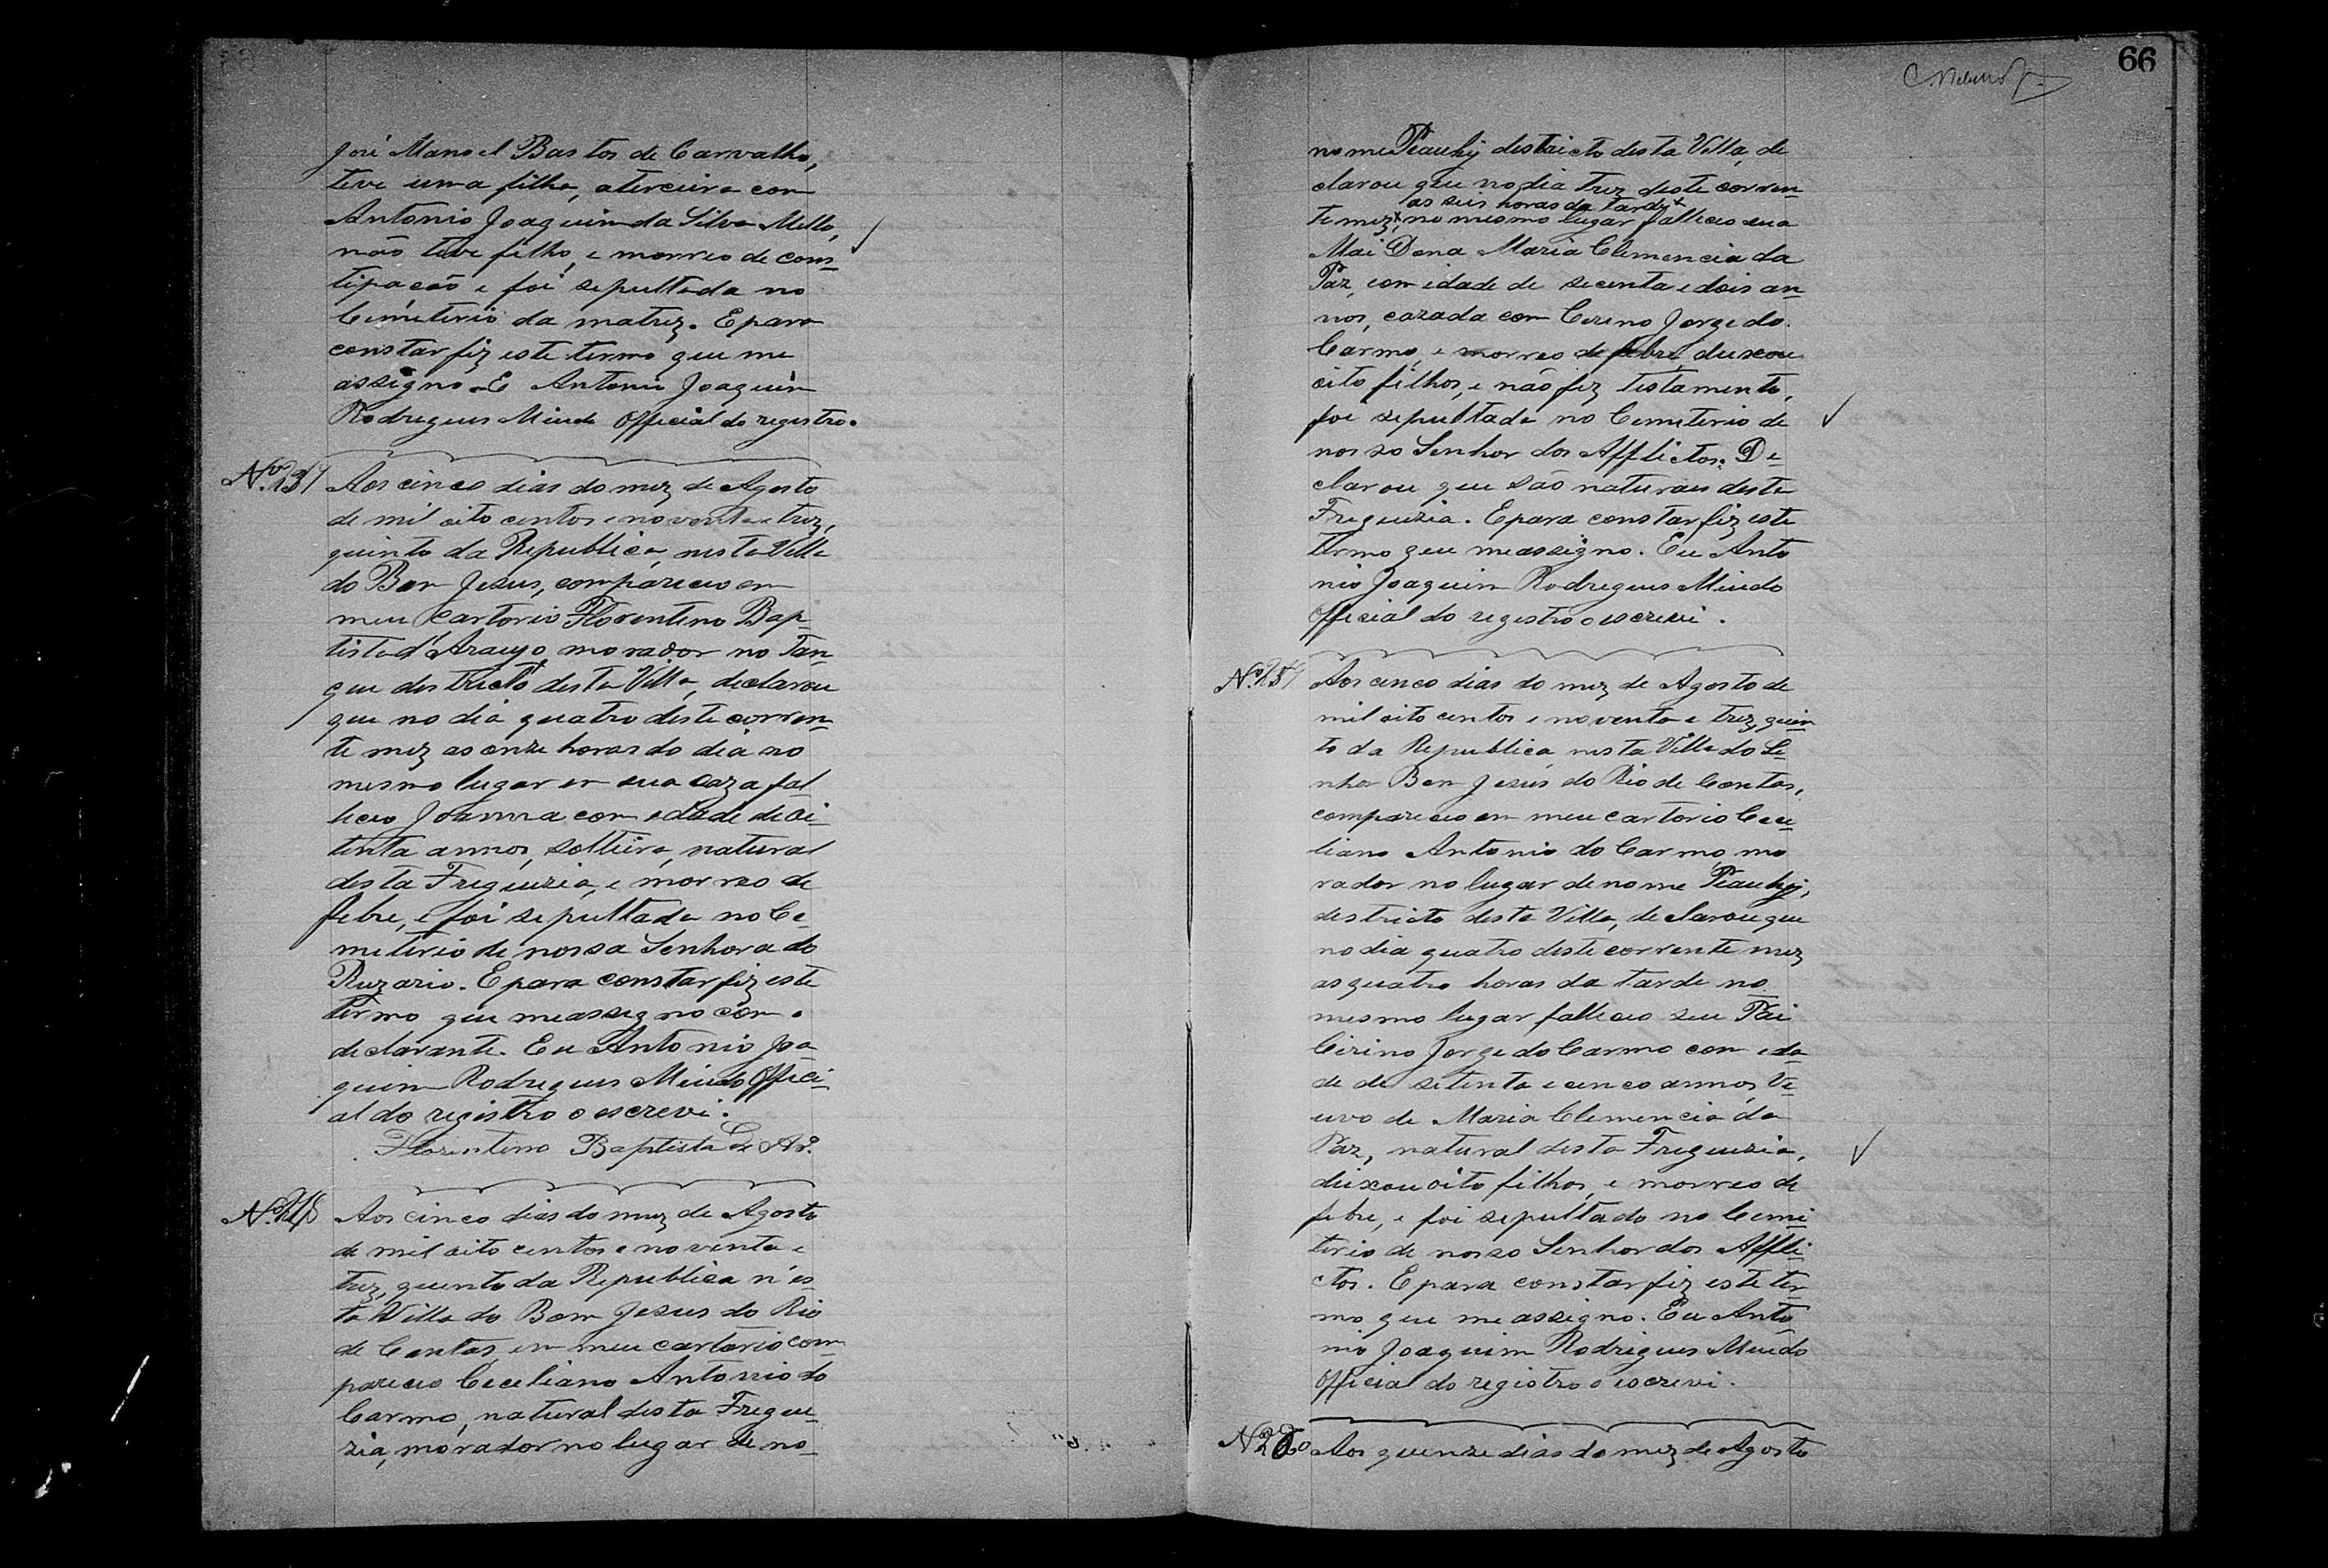 José Manoel Bastos de Carvalho,
teve uma filha, aterceira com
Antonio Joaquim da Silva Mello,
não teve filho, e morreo de cons-
tipacão e foi sepultada no
Cemiterio da matriz. Epara
constar fiz este termo que me
assigno. E Antonio Joaquim
Rodrigues Miudo Official do registro.
Aos cinco dias do mez de Agosto
de mil oito centos e noventa e trez,
quinto da Republica, nesta Villa
do Bom Jesus, compareceo em
meu Cartorio Florentino Bap-
tista d'Araujo morador no Tan-
que destricto desta Villa, declarou
que no dia quatro deste corren-
te mez as onze horas do dia no
mesmo lugar em sua caza fal
leceo Joanna com edade de oi-
tenta annos, solteira, natural
desta Freguezia, e morreo de
febre, e foi sepultada no Ce-
miterio de nossa Senhora do
Ruzario. Epara constar fiz este
termo que meassigno com o
declarante. Eu Antonio Joa
quim Rodrigues Miudo Offici-
al do registro o escrevi.
Florentino Baptista de Arº.
Aos cinco dias do mez de Agosto
de mil oito centos e noventa e
trez, quinto da Republica n'es-
ta Villa do Bom Jesus do Rio
de Contas, em meu cartorio com-
pareceo Ceciliano Antonio do
Carmo, natural desta Fregue-
zia, morador no lugar de no-
66
nome Piauhy destricto desta Villa, de
clarou que no dia trez deste corren-
as seis horas da tarde
te mez, no mesmo lugar falleceo sua
Mai Dona Maria Clemencia da
Paz, com edade de secenta e dois an-
nos, cazada com Cerino Jorge do
Carmo, e morreo de febre, deixou
oito filhos, e não fez testamento,
foi sepultada no Cemiterio de
nosso Senhor dos Afflictos. De-
clarou que são naturaes desta
Freguezia. Epara constar fiz este
termo que meassigno. Eu Anto
nio Joaquim Rodrigues Miudo
Official do registro o escrevi.
Aos cinco dias do mez de Agosto de
mil oito centos e noventa e trez, quin-
to da Republica nesta Villa do Se-
nhor Bom Jesus do Rio de Contas,
compareceo em meu cartorio Ceci-
liano Antonio do Carmo, mo
rador no lugar de nome Piauhy,
destricto desta Villa, declarou que
no dia quatro deste corrente mez
as quatro horas da tarde no
mesmo lugar falleceo seu Pai
Cirino Jorge do Carmo com eda-
de de setenta e cinco annos, Vi-
uvo de Maria Clemencia da
Paz, natural desta Freguezia,
deixou oito filhos, e morreo de
febre, e foi sepultado no Cemi-
terio de nosso Senhor dos Affli-
ctos. Epara constar fiz este ter-
mo que me assigno. Eu Anto
nio Joaquim Rodrigues Miudo
Official do registro o escrevi.
Aos quinze dias do mez de Agosto